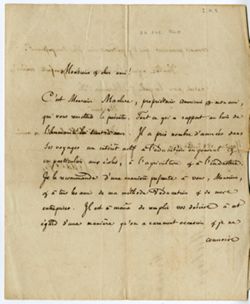 Monsieur & cher ami!
C'est Monsieur Maclure, propriétaire américain & mon ami,
qui vous remettra la présente. Tout ce qui a rapport au bien de
l'humanité
Il a pris nombre d'années dans
ses voyages un intérêt actif à l'éducation en général &
en particulier aux écoles, à l'agriculture & à l'industrie.
Je le recommande d'une manière présente à vous, Monsieur,
& à tous les amis de ma méthode d'éducation & de mes
entreprises. Il est à même de remplir vos désirs à cet
égard d'une manière qu'on a rarement occasion & je ne
connaisse